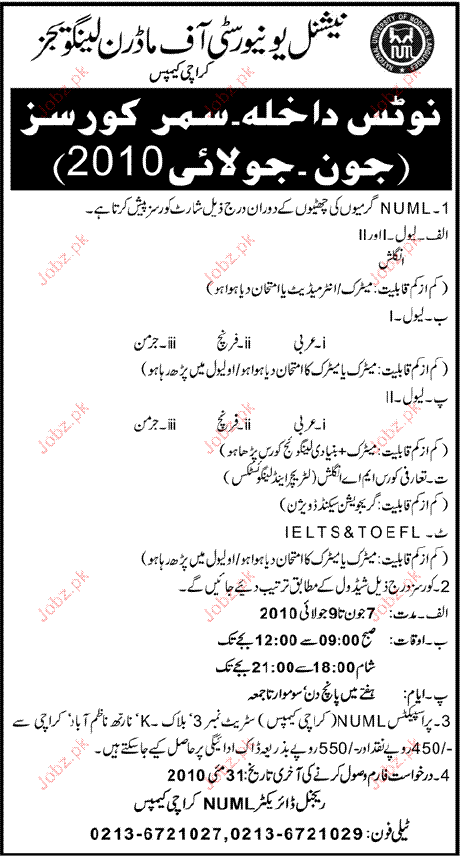 نیشنل یونیورسٹی آف ماڈرن لینگویجز
کراچی کیمپس
NATIONAL UNIVERSITY OF MODERN LANGUAGES
NUML
نوٹس داخلہ۔سمر کورسز
(جون۔جولائی 2010)
1۔ NUML گرمیوں کی چھٹیوں کے دوران درج ذیل شارٹ کورسز پیش کرتا ہے۔
الف۔ لیول۔ I اور II
انگلش
(کم از کم قابلیت: میٹرک/انٹرمیڈیٹ یا امتحان دیا ہوا ہو)
ب۔ لیول۔ I
i۔ عربی ii۔ فرنچ iii۔ جرمن
(کم از کم قابلیت: میٹرک یا میٹرک کا امتحان دیا ہوا ہو/او لیول میں پڑھ رہا ہو)
پ۔ لیول۔ II
i۔ عربی ii۔ فرنچ iii۔ جرمن
(کم از کم قابلیت: میٹرک + بنیادی لینگوئج کورس پڑھا ہو)
ت۔ تعارفی کورس ایم اے انگلش (لٹریچر اینڈ لینگوئسٹکس)
(کم از کم قابلیت: گریجویشن سیکنڈ ڈویژن)
ٹ۔ IELTS & TOEFL
(کم از کم قابلیت: میٹرک یا میٹرک کا امتحان دیا ہوا ہو/او لیول میں پڑھ رہا ہو)
2۔ کورسز درج ذیل شیڈول کے مطابق ترتیب دیئے جائیں گے۔
الف۔ مدت: 7 جون تا 9 جولائی 2010
ب۔ اوقات: صبح 09:00 سے 12:00 بجے تک
شام 18:00 سے 21:00 بجے تک
پ۔ ایام: ہفتے میں پانچ دن سوموار تا جمعہ
3۔ پراسپیکٹس NUML (کراچی کیمپس) سٹریٹ نمبر 3، بلاک ۔K، نارتھ ناظم آباد، کراچی سے
450/- روپے نقد اور 550/- روپے بذریعہ ڈاک ادائیگی پر حاصل کیے جا سکتے ہیں۔
4۔ درخواست فارم وصول کرنے کی آخری تاریخ: 31 مئی 2010
ریجنل ڈائریکٹر NUML کراچی کیمپس
ٹیلی فون: 0213-6721027, 0213-6721029
Jobz.pk